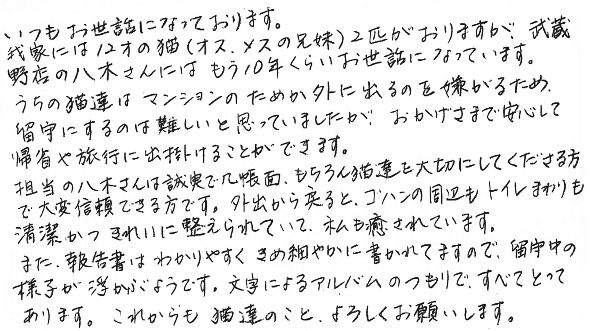 いつもお世話になっております。
我家には12才の猫(オス、メスの兄妹)2匹がおりますが、武蔵
野店の八木さんにはもう10年くらいお世話になっています。
うちの猫達はマンションのためか外に出るのを嫌がるため、
留守にするのは難しいと思っていましたが、おかげさまで安心して
帰省や旅行に出掛けることができます。
担当の八木さんは誠実で几帳面、もちろん猫達を大切にしてくださる方
で大変信頼できる方です。外出から戻ると、ゴハンの周辺もトイレまわりも
清潔かつきれいに整えられていて、私も癒されています。
また、報告書はわかりやすくきめ細やかに書かれてますので、留守中の
様子が浮かぶようです。文字によるアルバムのつもりで、すべてとって
あります。これからも猫達のこと、よろしくお願いします。